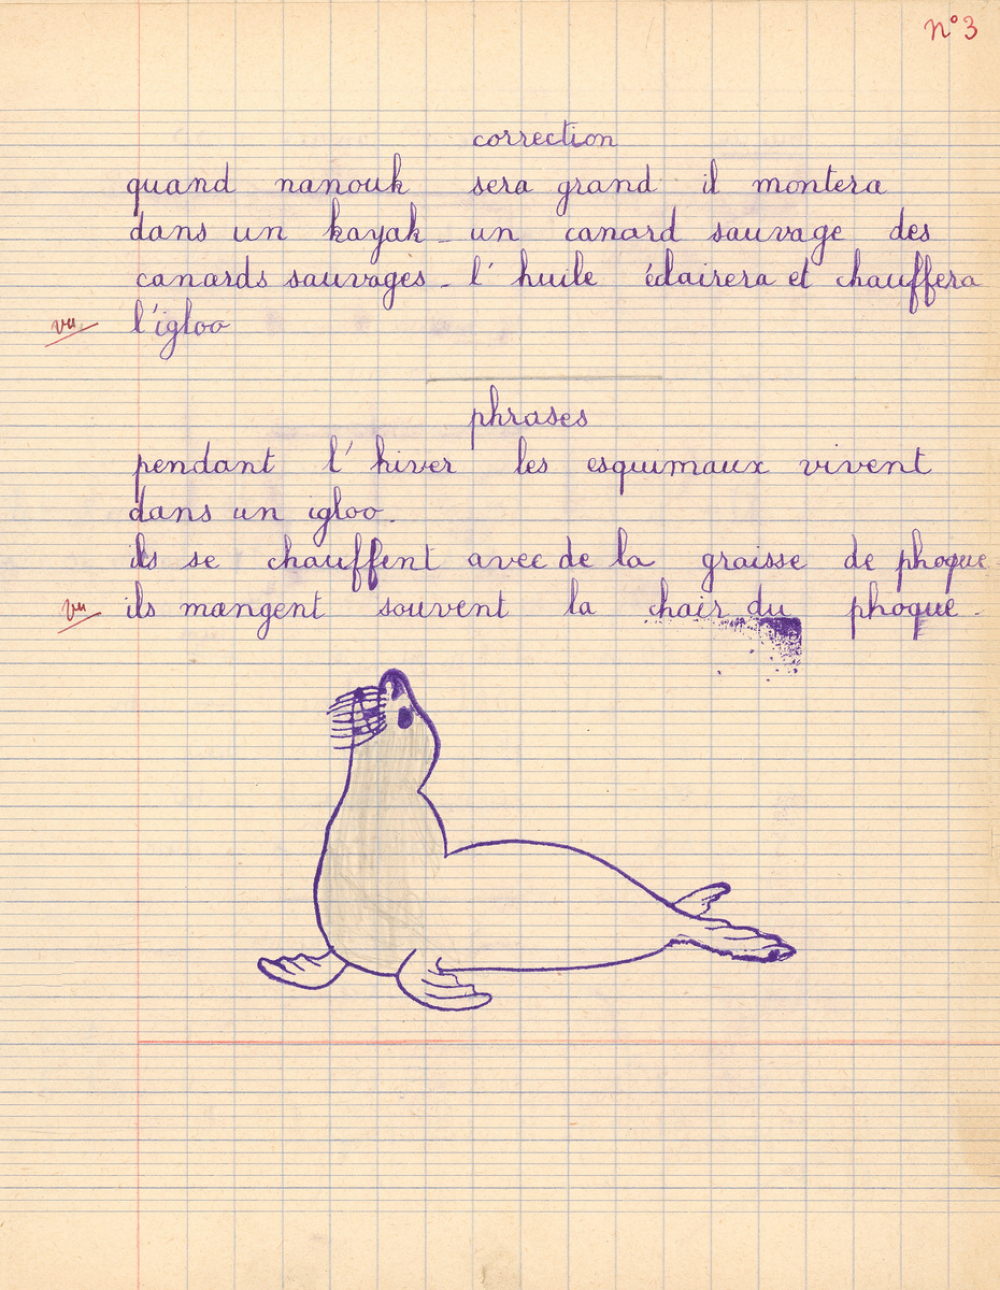 n° 3
correction
quand nanouk sera grand il montera
dans un kayak - un canard sauvage des
canards sauvages - l' huile éclairera et chauffera
vu l'igloo
phrases
pendant l' hiver les esquimaux vivent
dans un igloo.
ils se chauffent avec de la graisse de phoque
vu ils mangent souvent la chair du phoque -